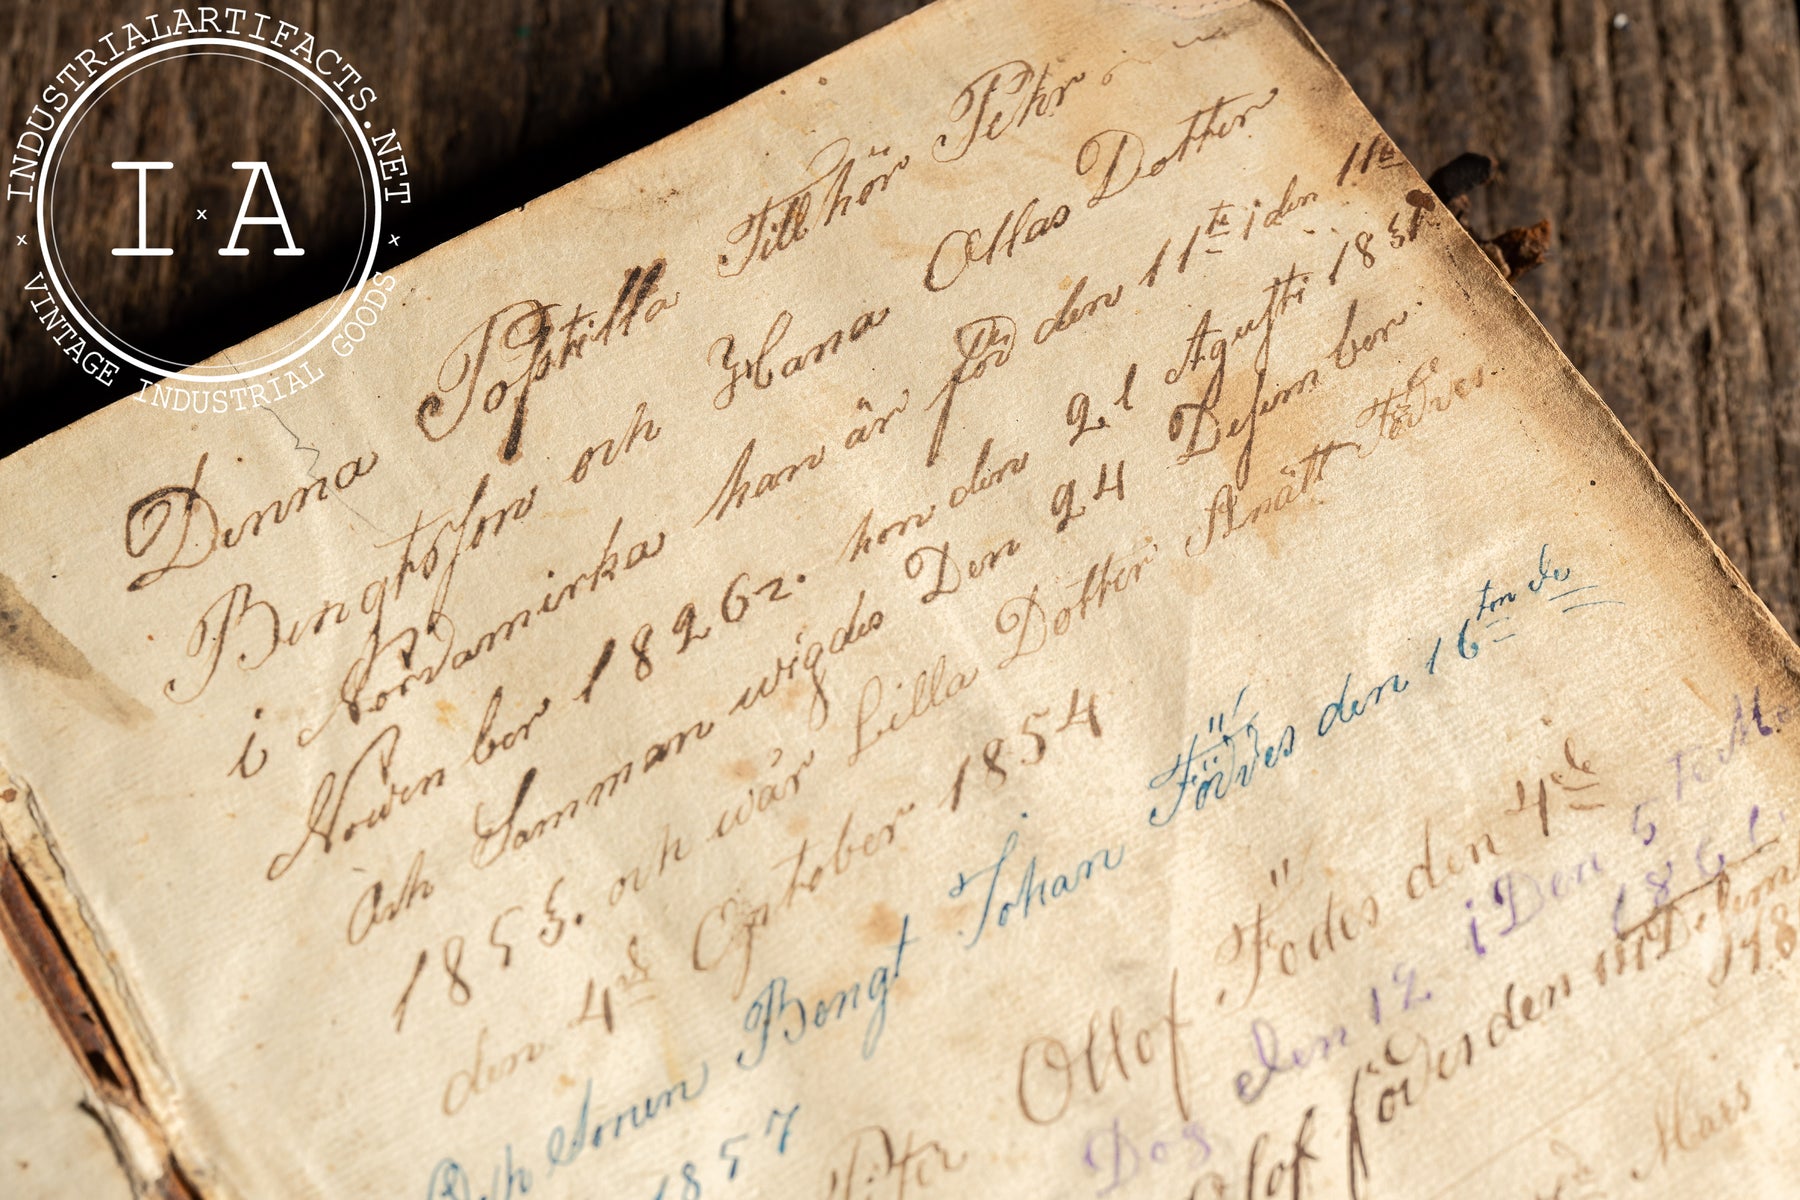 INDUSTRIALARTIFACTS.NET
I A
VINTAGE INDUSTRIAL GOODS
Denna Postilla Tillhör Pehr
Bengtsson och Hana Ollas Dotter
i Nordamirka han är föd den 11te i den 11te
Nowem ber 1826 hon den 21 Agusti 183
Och Samman wigdes Den 24 Desember
1853. och wår Lilla Dotter Amätt Föddes
den 4 October 1854
Och Sonen Bengt Johan Föddes den 16
1857
Petter Ollof Födes den 4de
Dog den 12 i Den 5
186
Olof föddes den Desem
178
Mars